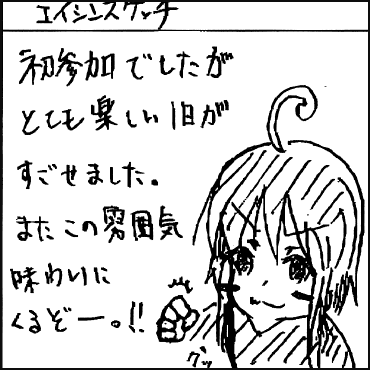 エイシンスケッチ
初参加でしたが
とても楽しい1日が
すごせました。
またこの雰囲気
味わいに
くるぞー。!!
グッ